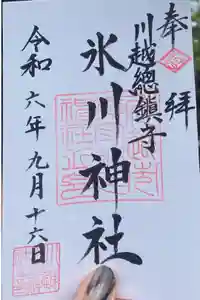 奉拝
川越總鎮守
氷川神社
令和六年九月十六日